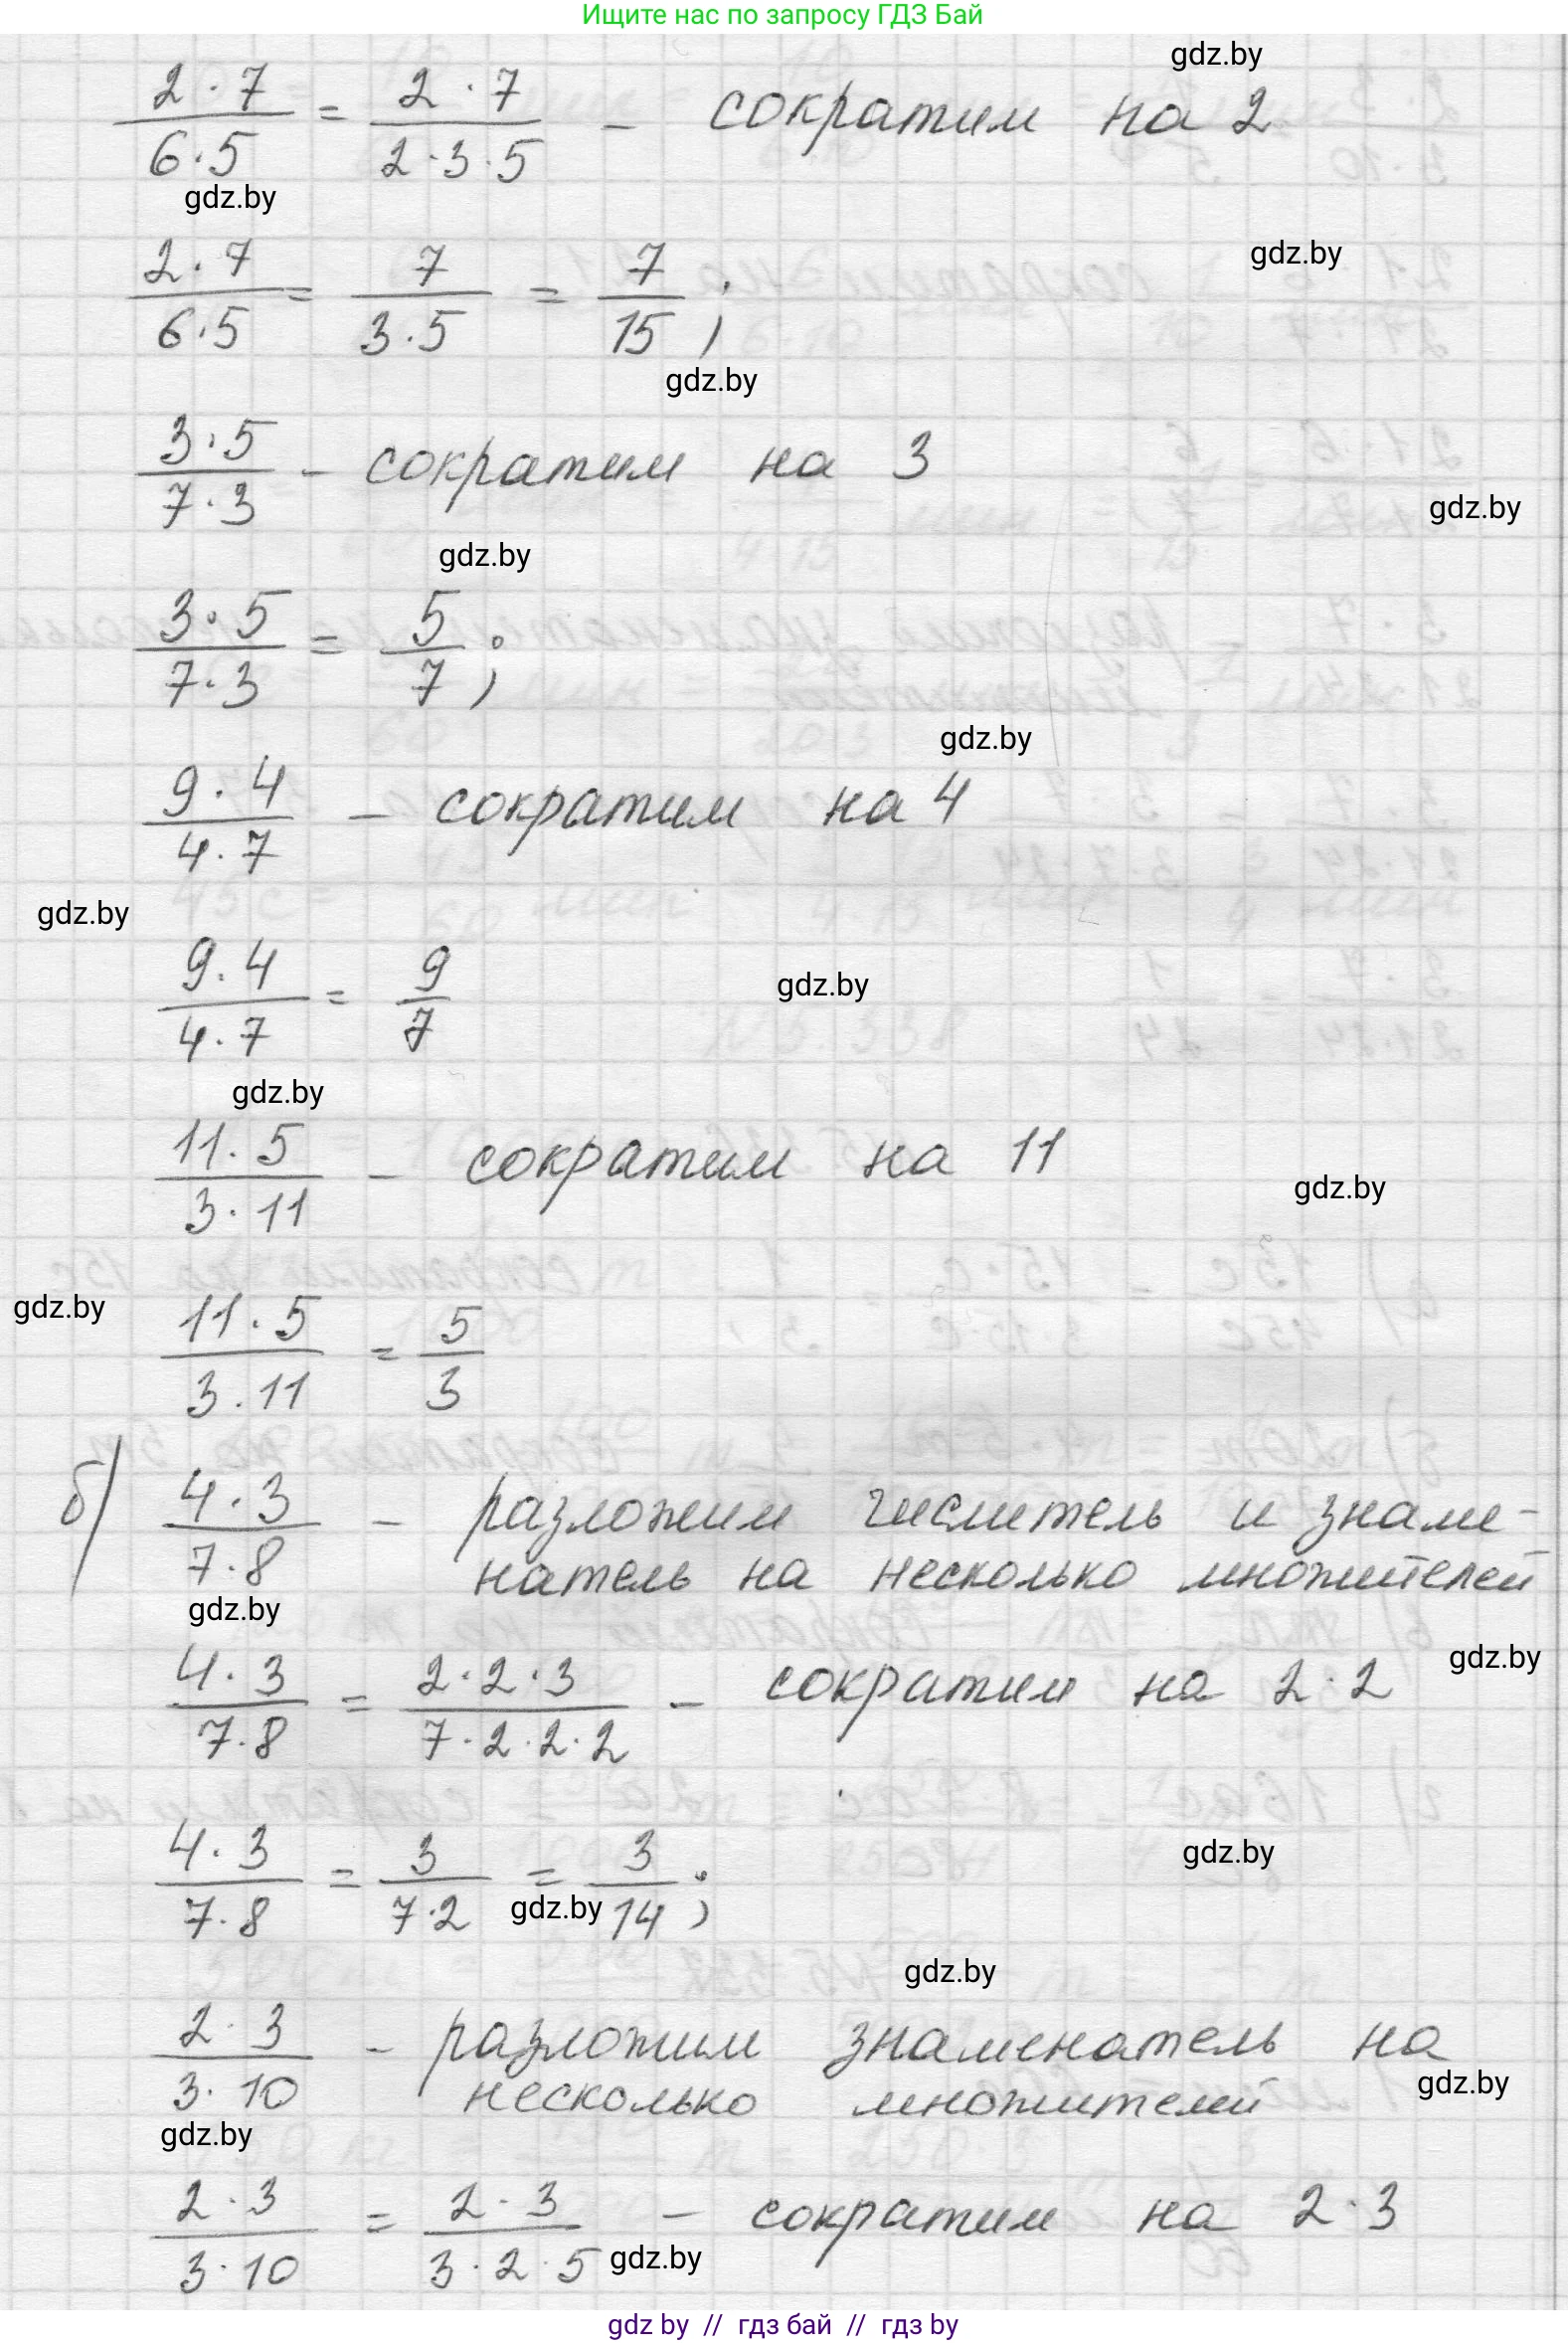 Ищите нас по запросу ГДЗ Бай
gdz.by
2·7/6·5 = 2·7/2·3·5 – сократим на 2
gdz.by
gdz.by
2·7/6·5 = 7/3·5 = 7/15 ;
gdz.by
3·5/7·3 – сократим на 3
gdz.by
gdz.by
3·5/7·3 = 5/7 ;
gdz.by
9·4/4·7 – сократим на 4
gdz.by
9·4/4·7 = 9/7
gdz.by
gdz.by
11·5/3·11 – сократим на 11
gdz.by
gdz.by
11·5/3·11 = 5/3
б) 4·3/7·8 – разложим числитель и знаме-
натель на несколько множителей
gdz.by
gdz.by
4·3/7·8 = 2·2·3/7·2·2·2 – сократим на 2·2
gdz.by
4·3/7·8 = 3/7·2 = 3/14 ;
gdz.by
gdz.by
2·3/3·10 – разложим знаменатель на
несколько множителей
gdz.by
gdz.by
2·3/3·10 = 2·3/3·2·5 – сократим на 2·3
gdz.by
gdz by // гдз бай // gdz by